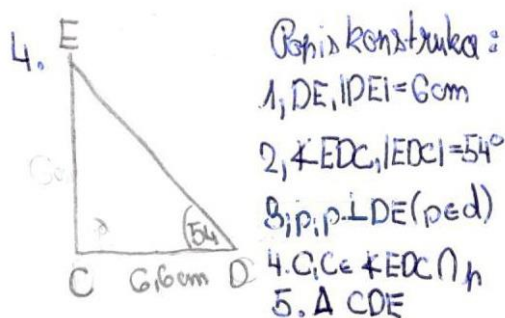 4.
E
54
C 6,6cm D
Popis konstrukce:
1, DE, |DE|=6cm
2, ∢EDC, |EDC|=54°
3, p, p⊥DE (p∈d)
4. C, C∈ ∢EDC ∩ p
5. Δ CDE